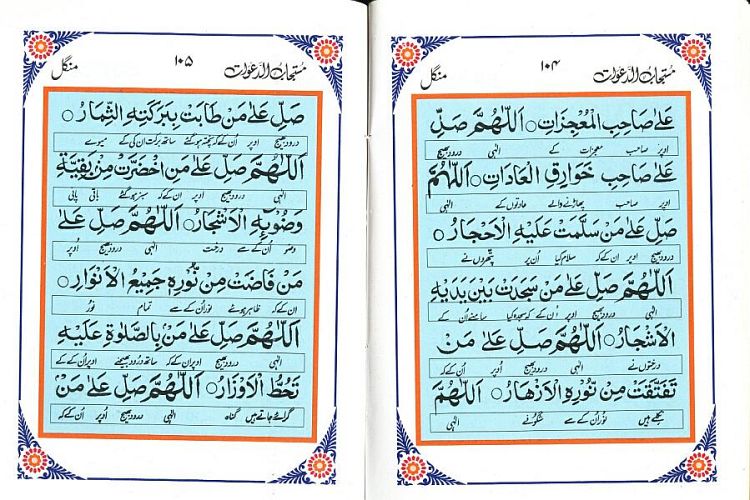 مستجاب الدعوات ۱۰۴ منگل
عَلٰى صَاحِبِ الْمُعْجِزَاتِ ○ اَللّٰهُمَّ صَلِّ
اوپر صاحب معجزات کے الٰہی درود بھیج
عَلٰى صَاحِبِ خَوَارِقِ الْعَادَاتِ ○ اَللّٰهُمَّ
اوپر صاحب پھاڑنے والے عادتوں کے الٰہی
صَلِّ عَلٰى مَنْ سَلَّمَتْ عَلَيْهِ الْاَحْجَارُ ○
درود بھیج اوپر ان کے کہ سلام کیا اُن پر پتھروں نے
اَللّٰهُمَّ صَلِّ عَلٰى مَنْ سَجَدَتْ بَيْنَ يَدَيْهِ
الٰہی درود بھیج اوپر اُن کے کہ سجدہ کیا سامنے اُن کے
الْاَشْجَارُ ○ اَللّٰهُمَّ صَلِّ عَلٰى مَنْ
درختوں نے الٰہی درود بھیج اوپر اُن کے کہ
تَفَتَّقَتْ مِنْ نُّوْرِهِ الْاَزْهَارُ ○ اَللّٰهُمَّ
کھلے ہیں نور اُن کے سے شگوفے الٰہی
مستجاب الدعوات ۱۰۵ منگل
صَلِّ عَلٰى مَنْ طَابَتْ بِبَرَكَتِهِ الثِّمَارُ ○
درود بھیج اوپر اُن کے کہ پختہ ہو گئے ساتھ برکت ان کی کے میوے
اَللّٰهُمَّ صَلِّ عَلٰى مَنِ اخْضَرَّتْ مِنْ بَقِيَّةِ
الٰہی درود بھیج اوپر ان کے کہ سبز ہو گئے باقی پانی
وَضُوْئِهِ الْاَشْجَارُ ○ اَللّٰهُمَّ صَلِّ عَلٰى
وضو اُن کے سے درخت الٰہی درود بھیج اُوپر
مَنْ فَاضَتْ مِنْ نُّوْرِهٖ جَمِيْعُ الْاَنْوَارِ ○
ان کے کہ ظاہر ہوئے نور اُن کے سے تمام نُور
اَللّٰهُمَّ صَلِّ عَلٰى مَنْ بِالصَّلٰوةِ عَلَيْهِ
الٰہی درود بھیج اوپر ان کے کہ ساتھ درود بھیجنے اوپر ان کے کے
تُحَطُّ الْاَوْزَارُ ○ اَللّٰهُمَّ صَلِّ عَلٰى مَنْ
گرائے جاتے ہیں گناہ الٰہی درود بھیج اُوپر اُن کے کہ